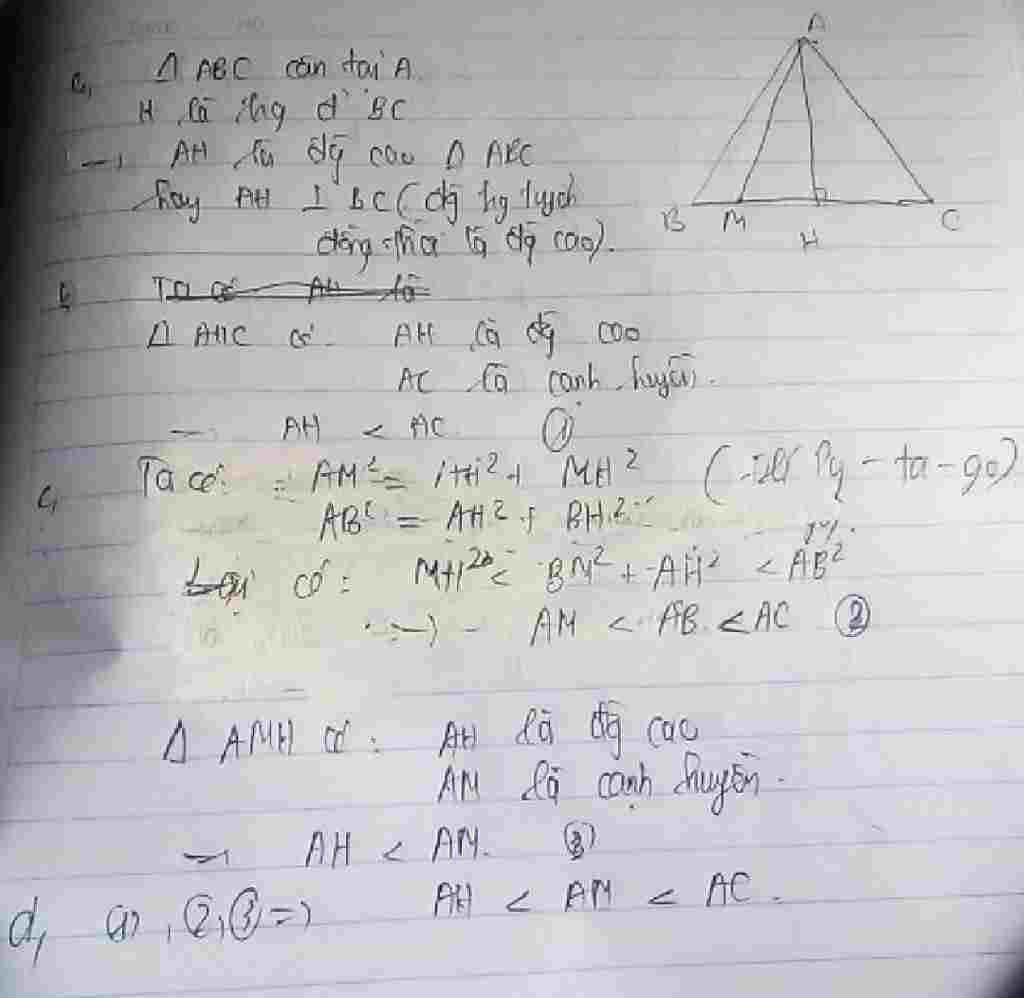 A
a, Δ ABC cân tại A.
H là trg đ' BC
→ AH là đg cao Δ ABC
hay AH ⊥ BC (đg trg tuyến
đồng thời là đg cao).
B M H C
b, Ta có AH là
Δ AHC có. AH là đg cao
AC là cạnh huyền.
→ AH < AC. ①
c, Ta có: AM² = AH² + MH² (Py-ta-go)
AB² = AH² + BH²
Lại có: MH² < + AH² < AB²
→ AM < AB < AC ②
Δ AMH có: AH là đg cao
AM là cạnh huyền.
→ AH < AM. ③
d, ①, ②, ③ => AH < AM < AC.